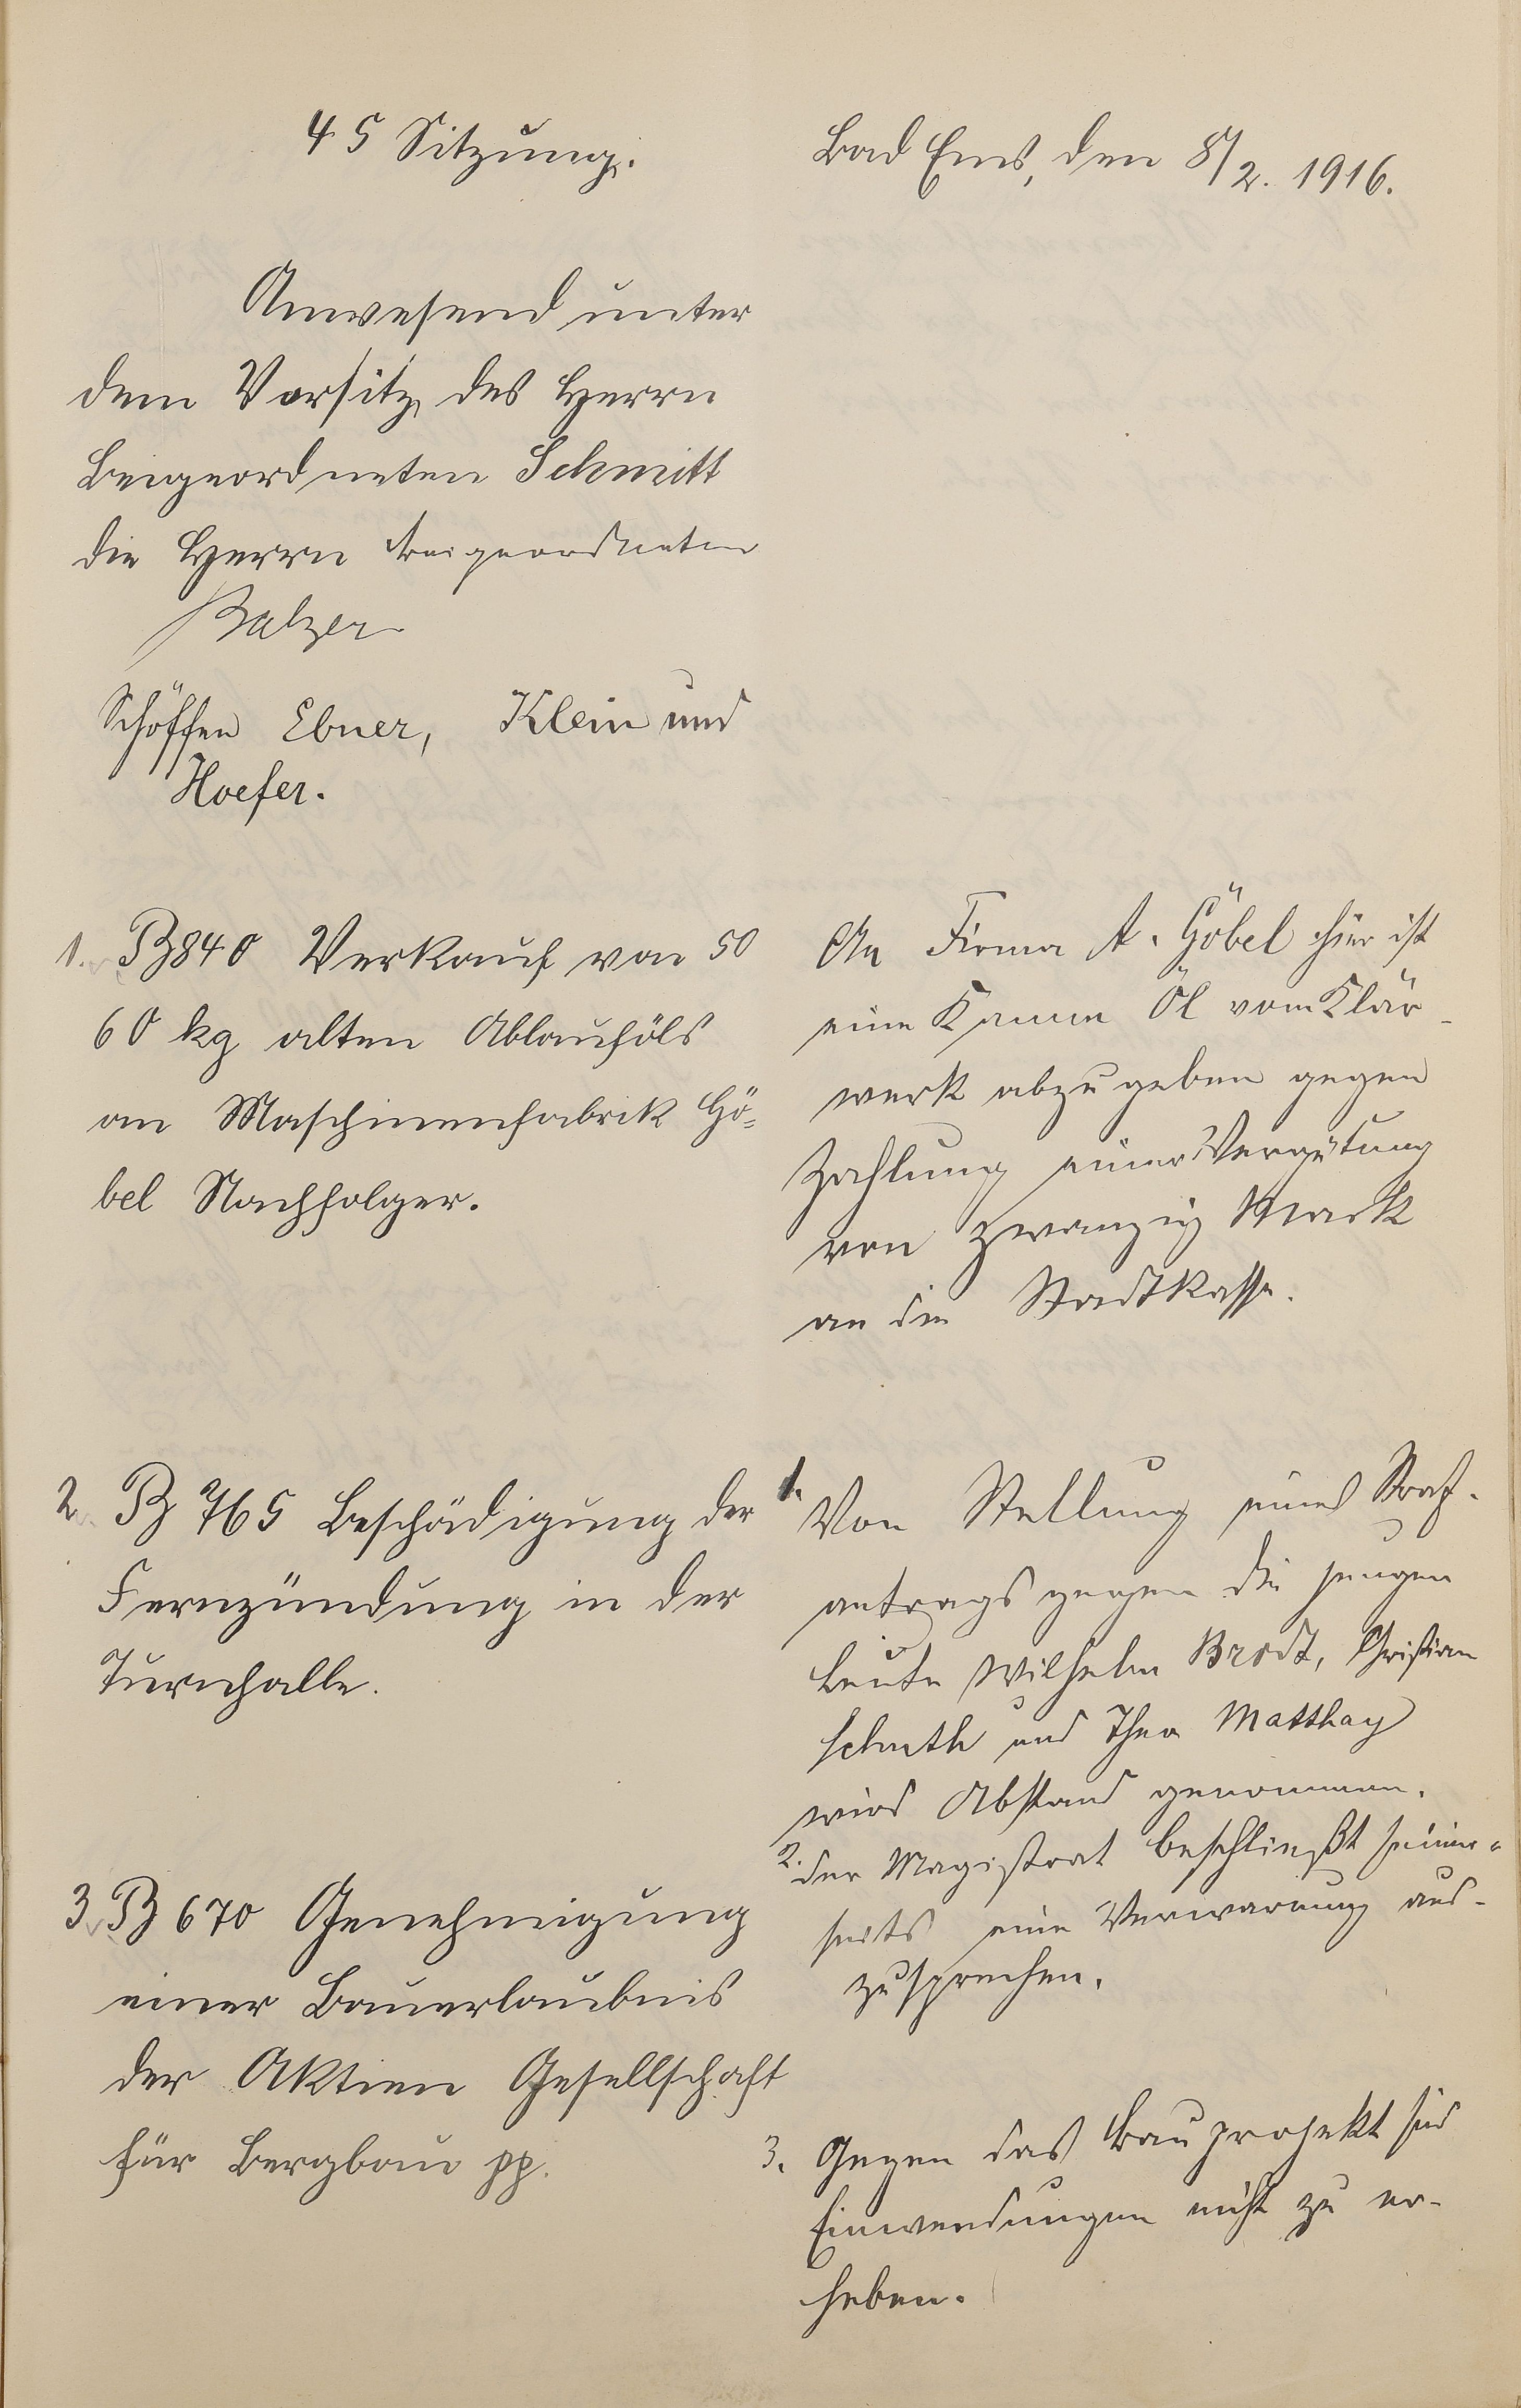 45 Sitzung.
Bad Ems, den 8/2. 1916.
Anwesend unter
dem Vorsitz des Herrn
Beigeordneten Schmitt
die Herrn Beigeordneten
Balzer
Schöffen Ebner, Klein und
Hoefer.
1. B 840 Verkauf von 50
60 kg alten Ablauföls
an Maschinenfabrik Gö=
bel Nachfolger.
An Firma A. Göbel hier ist
eine Kanne Öl vom Klär-
werk abzugeben gegen
Zahlung einer Vergütung
von zwanzig Mark
an die Stadtkasse.
2. B 765 Beschädigung der
Fernzündung in der
Turnhalle.
1. Von Stellung eines Straf-
antrags gegen die jungen
Leute Wilhelm Brodt, Christian
und Theo Matthay
wird Abstand genommen.
2. der Magistrat beschließt seiner-
seits eine Verwarnung aus-
zusprechen.
3. B 670 Genehmigung
einer Bauerlaubnis
der Aktien Gesellschaft
für Bergbau pp.
3. Gegen das Bauprojekt sind
Einwendungen nicht zu er-
heben.